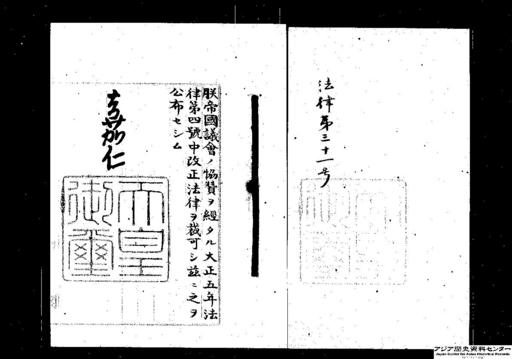 法律第三十一号
朕帝國議會ノ協贊ヲ經タル大正五年法
律第四號中改正法律ヲ裁可シ茲ニ之ヲ
公布セシム
嘉仁
天皇
御璽
アジア歴史資料センター
Japan Center for Asian Historical Records